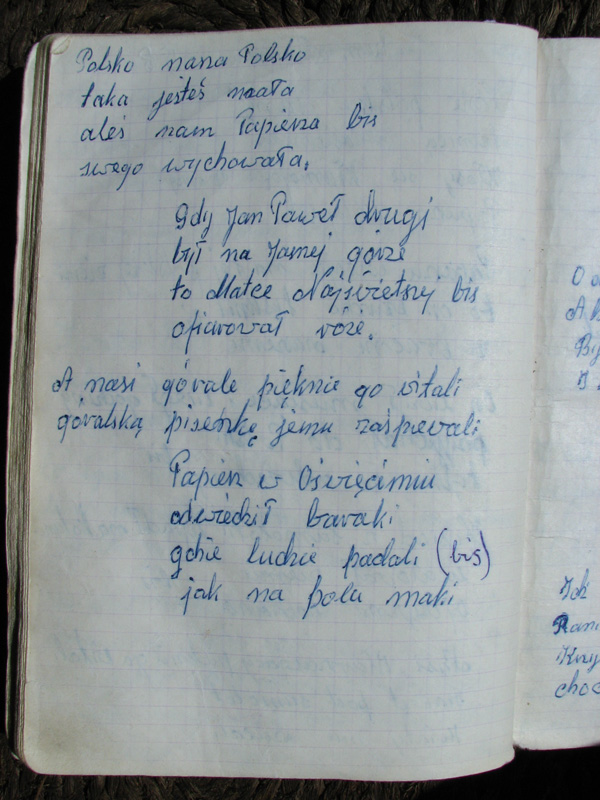 Polsko nasza Polsko
taka jesteś mała
aleś nam Papieża bis
swego wychowała.
Gdy Jan Paweł drugi
był na Jasnej górze
to Matce Najświetszej bis
ofiarował róże.
A nasi górale pięknie go witali
góralską pisenkę jemu zaśpiewali
Papież w Oświęcimiu
odwiedził baraki
gdzie ludzie padali (bis)
jak na polu maki
O
A
By
I
Jak
Rani
Krzy
choc